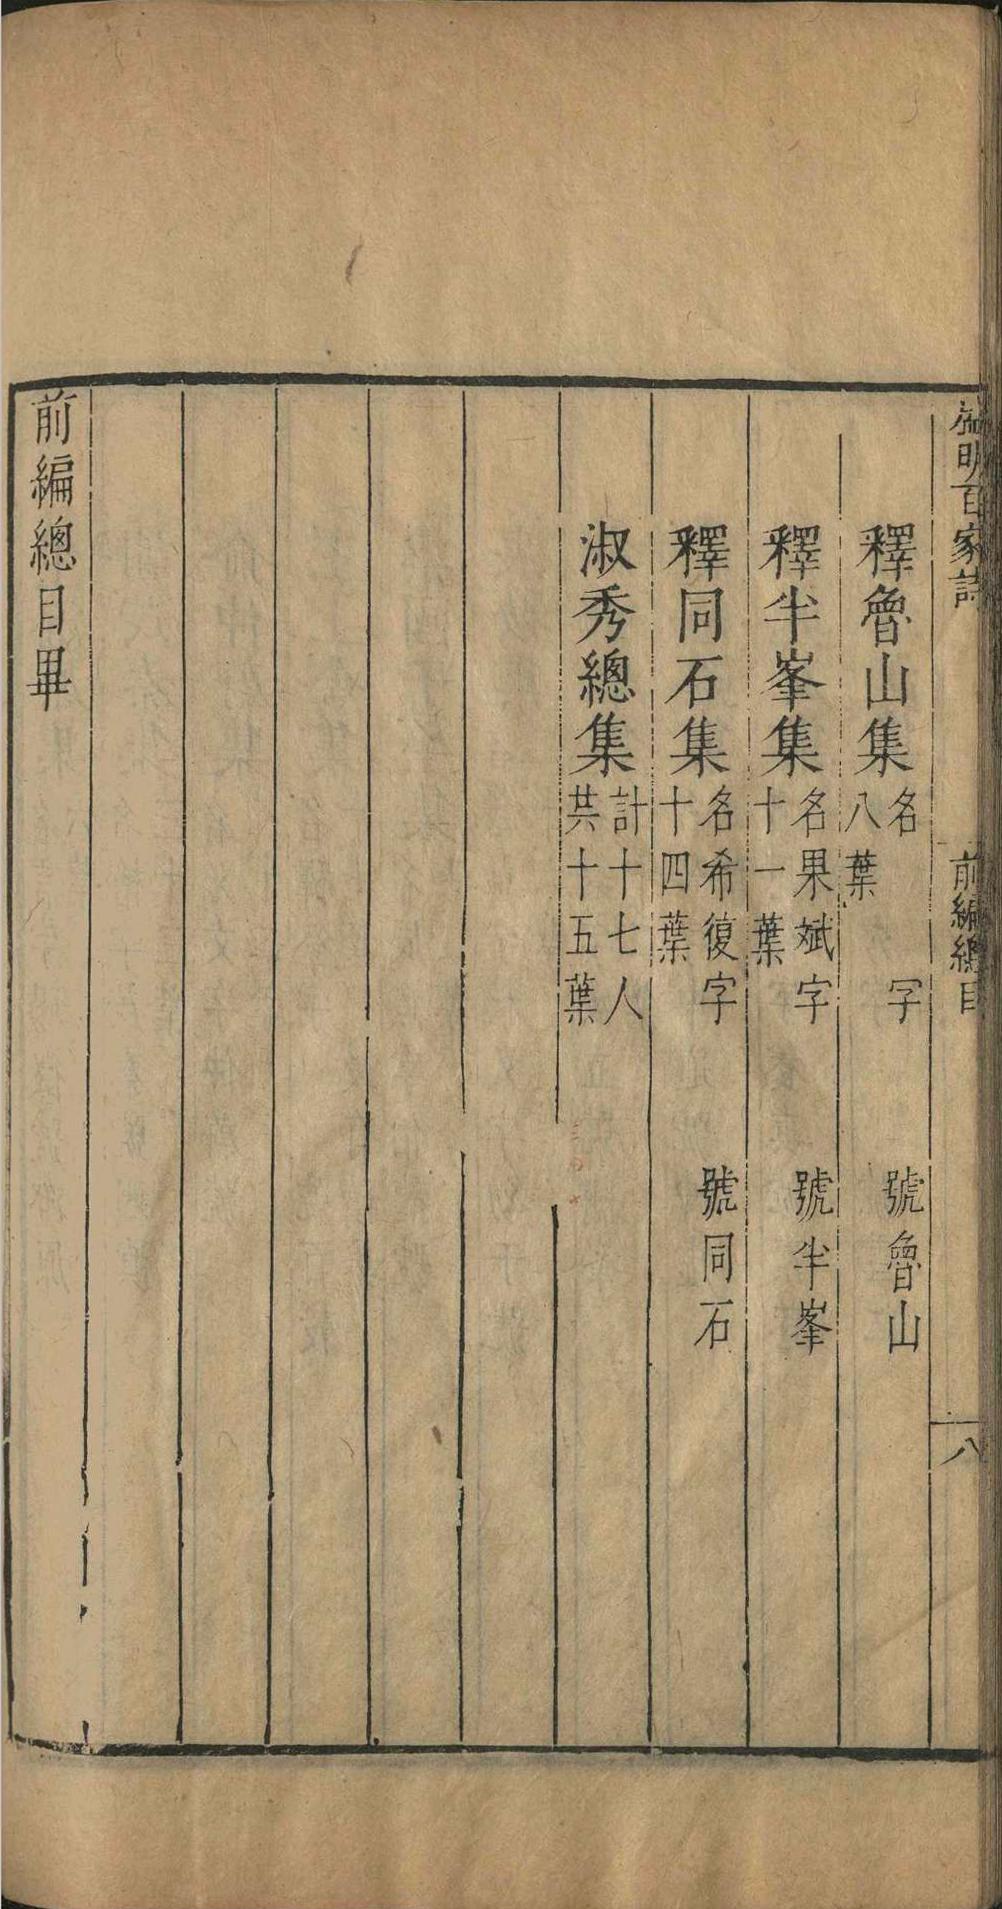 盛明百家詩
前編總目
八
釋魯山集
名 字 號魯山
八葉
釋半峯集
名果斌字 號半峯
十一葉
釋同石集
名希復字 號同石
十四葉
淑秀總集
計十七人
共十五葉
前編總目畢